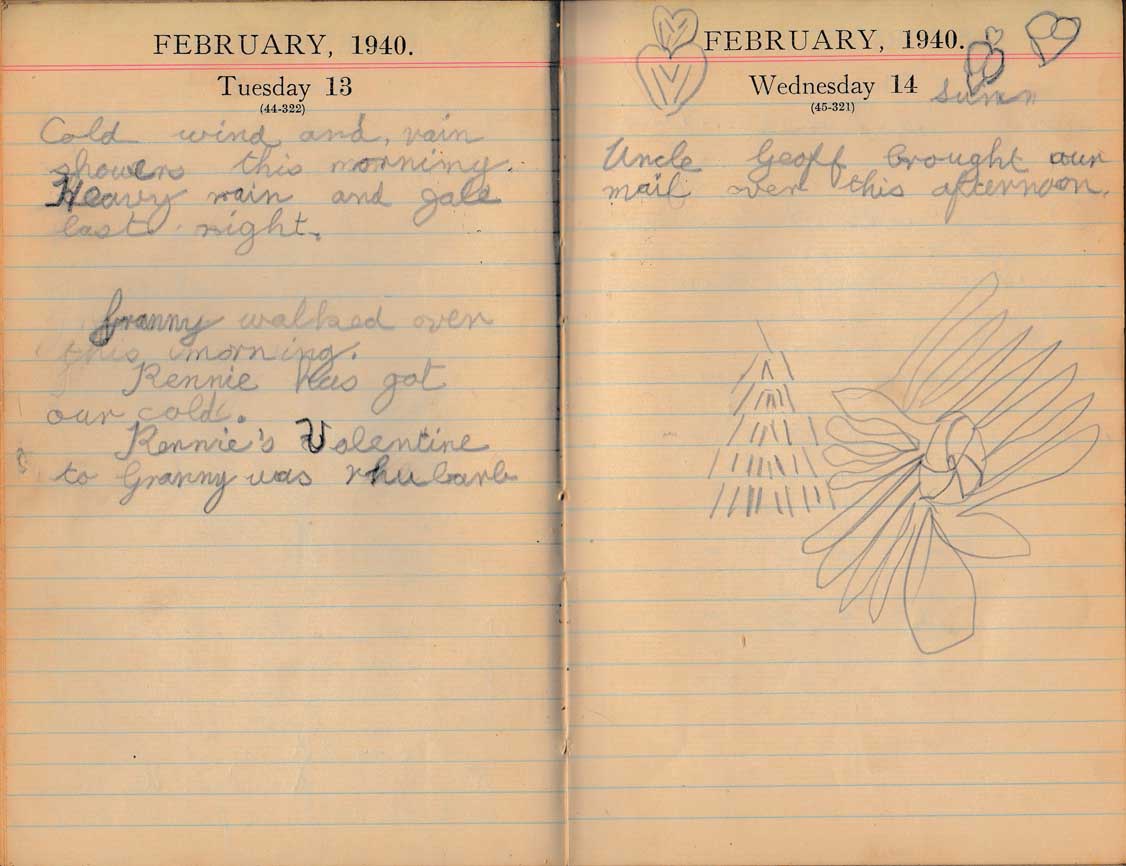 FEBRUARY, 1940.
Tuesday 13
(44-322)
Cold wind and, rain
showers this morning.
Heavy rain and gale
last night.
Granny walked over
this morning.
Rennie has got
our cold.
Rennie's Valentine
to Granny was rhubarb
FEBRUARY, 1940.
Wednesday 14
(45-321)
Uncle Geoff brought our
mail over this afternoon.